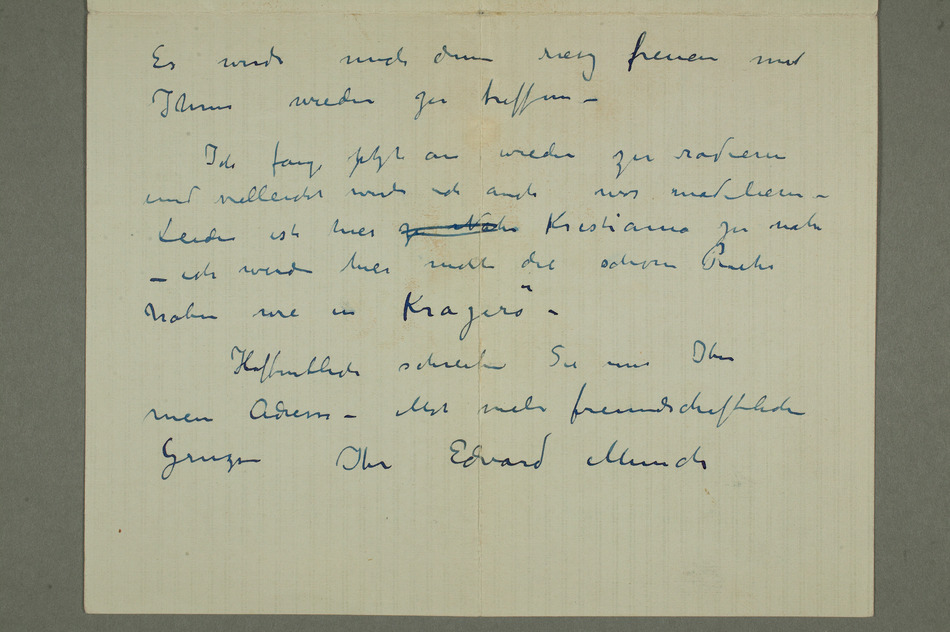 Es wurde mich denn riesig freuen mit
Ihnen wieder zu treffen –
Ich fange jetzt an wieder zu radieren
und vielleicht werde ich auch was modelieren –
Leider ist hier zu Nahe Kristiania zu nahe
– ich werde hier nicht die schöne Ruhe
haben wie in Kragerö –
Hoffentlich schreiben Sie mir Ihre
neue Adresse – Mit vielen freundschaftlichen
Gruzen Ihr Edvard Munch